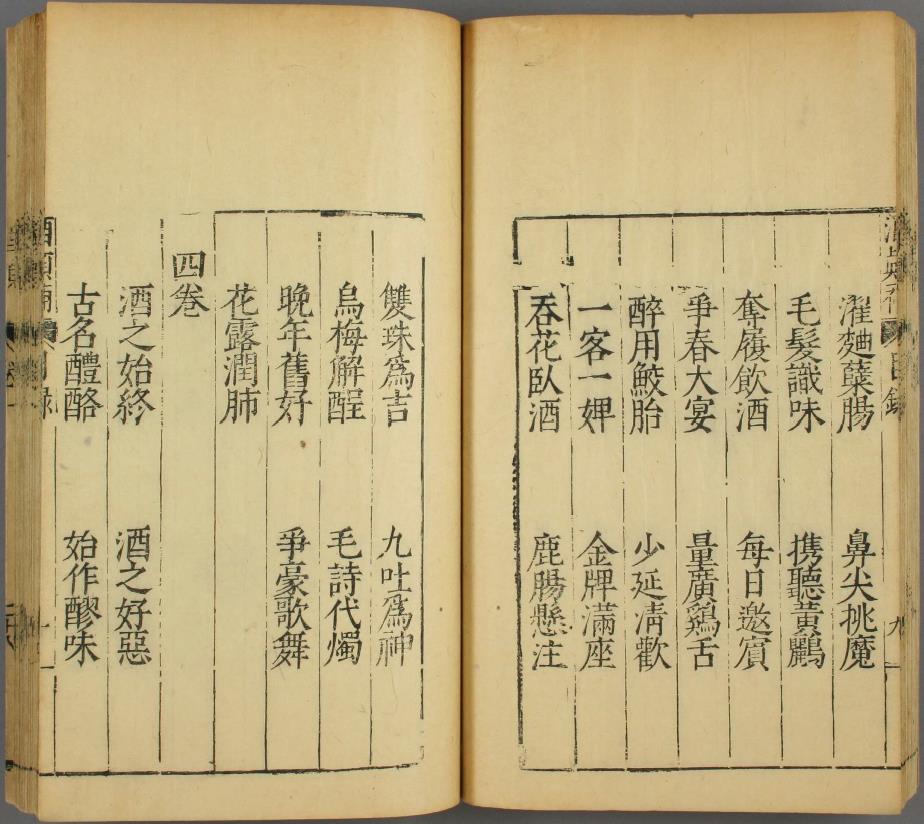 濯麯櫱腸 鼻尖挑魔
毛髮識味 携聽黃鸝
奪履飲酒 每日邀賓
爭春大宴 量廣鷄舌
醉用鮫胎 少延淸歡
一客一婢 金牌滿座
吞花臥酒 鹿腸懸注
雙珠爲吉 九吐爲神
烏梅解酲 毛詩代燭
晚年舊好 爭豪歌舞
花露潤肺
四巻
酒之始終 酒之好惡
古名醴酪 始作醪味